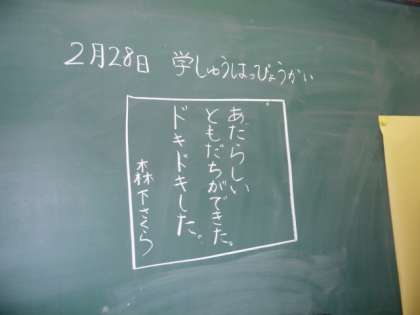 2月28日 学しゅうはっぴょうかい
あたらしい
ともだちができた。
ドキドキした。
森下さくら